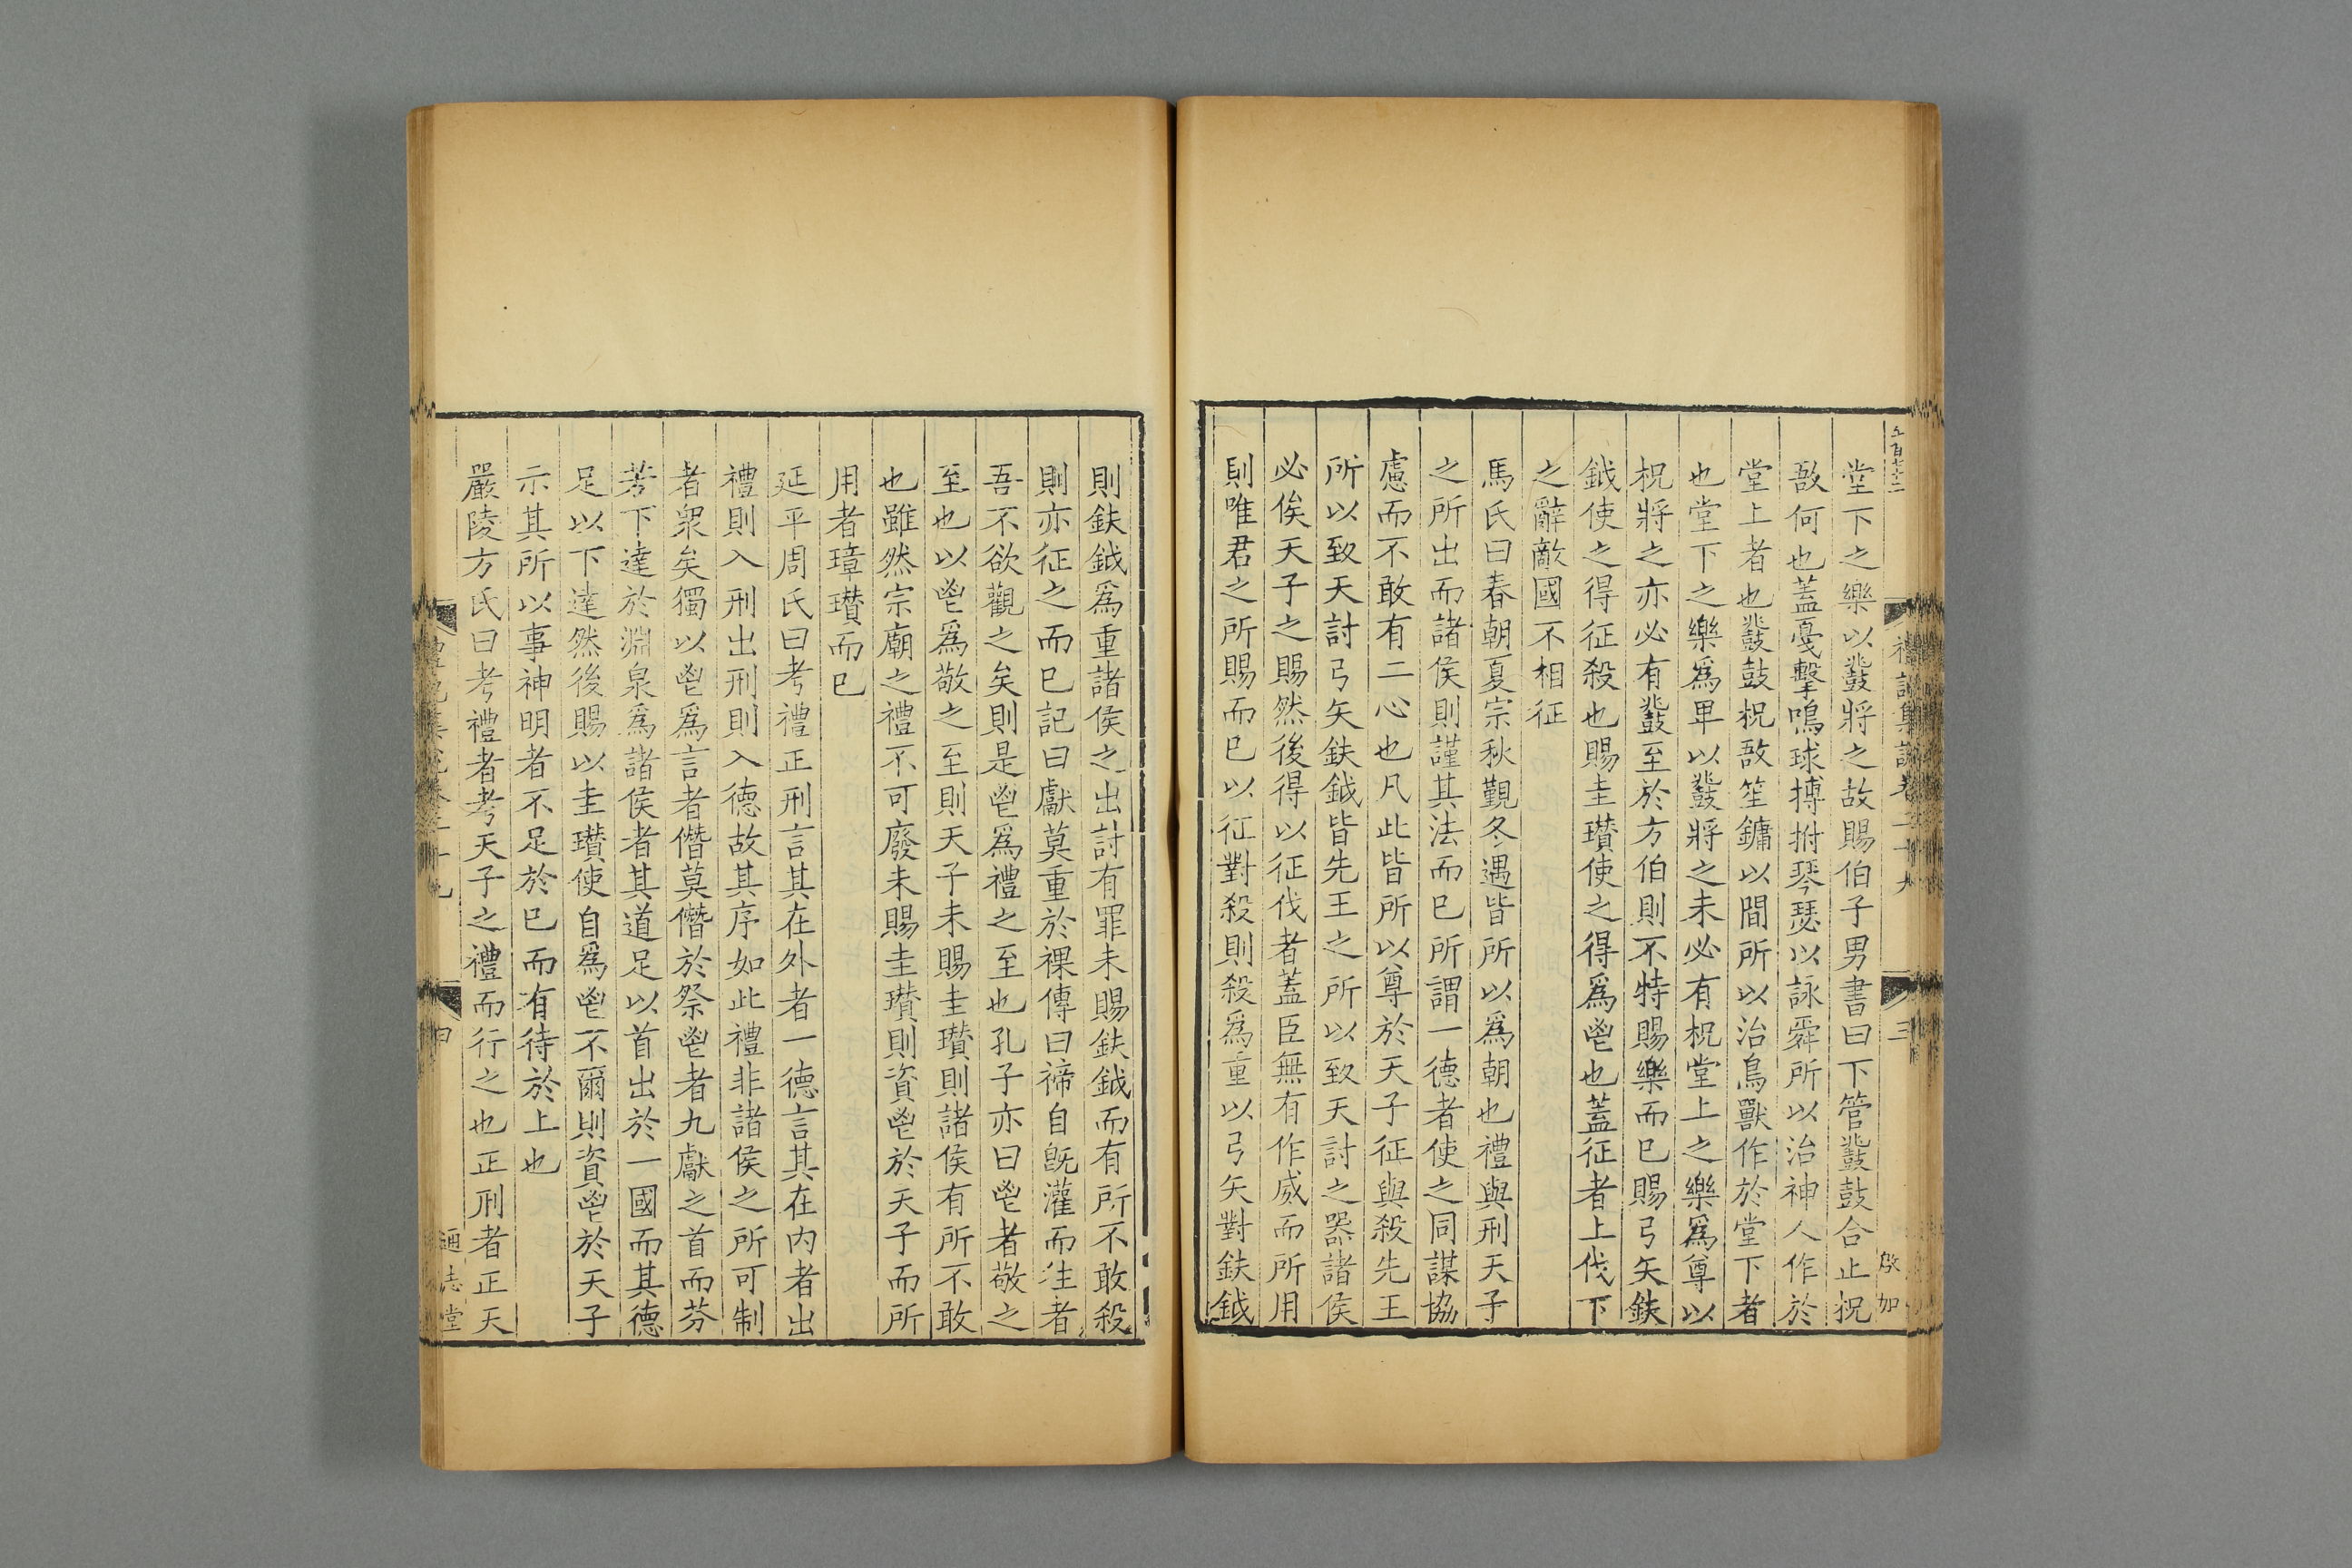 五百七十二
禮記集說卷二十九
三
啟加
堂下之樂以鼗將之故賜伯子男書曰下管鼗鼓合止柷
敔何也蓋戛擊鳴球搏拊琴瑟以詠舜所以治神人作於
堂上者也鼗鼓柷敔笙鏞以間所以治鳥獸作於堂下者
也堂下之樂爲卑以鼗將之未必有柷堂上之樂爲尊以
柷將之亦必有鼗至於方伯則不特賜樂而已賜弓矢鈇
鉞使之得征殺也賜圭瓚使之得爲鬯也蓋征者上伐下
之辭敵國不相征
馬氏曰春朝夏宗秋覲冬遇皆所以爲朝也禮與刑天子
之所出而諸侯則謹其法而已所謂一德者使之同謀協
慮而不敢有二心也凡此皆所以尊於天子征與殺先王
所以致天討弓矢鈇鉞皆先王之所以致天討之器諸侯
必俟天子之賜然後得以征伐者蓋臣無有作威而所用
則唯君之所賜而已以征對殺則殺爲重以弓矢對鈇鉞
則鈇鉞爲重諸侯之出討有罪未賜鈇鉞而有所不敢殺
則亦征之而已記曰獻莫重於祼傳曰禘自旣灌而往者
吾不欲觀之矣則是鬯爲禮之至也孔子亦曰鬯者敬之
至也以鬯爲敬之至則天子未賜圭瓚則諸侯有所不敢
也雖然宗廟之禮不可廢未賜圭瓚則資鬯於天子而所
用者璋瓚而已
延平周氏曰考禮正刑言其在外者一德言其在内者出
禮則入刑出刑則入德故其序如此禮非諸侯之所可制
者衆矣獨以鬯爲言者僭莫僭於祭鬯者九獻之首而芬
芳下達於淵泉爲諸侯者其道足以首出於一國而其德
足以下達然後賜以圭瓚使自爲鬯不爾則資鬯於天子
示其所以事神明者不足於已而有待於上也
嚴陵方氏曰考禮者考天子之禮而行之也正刑者正天
禮記集說卷二十九
四
通志堂